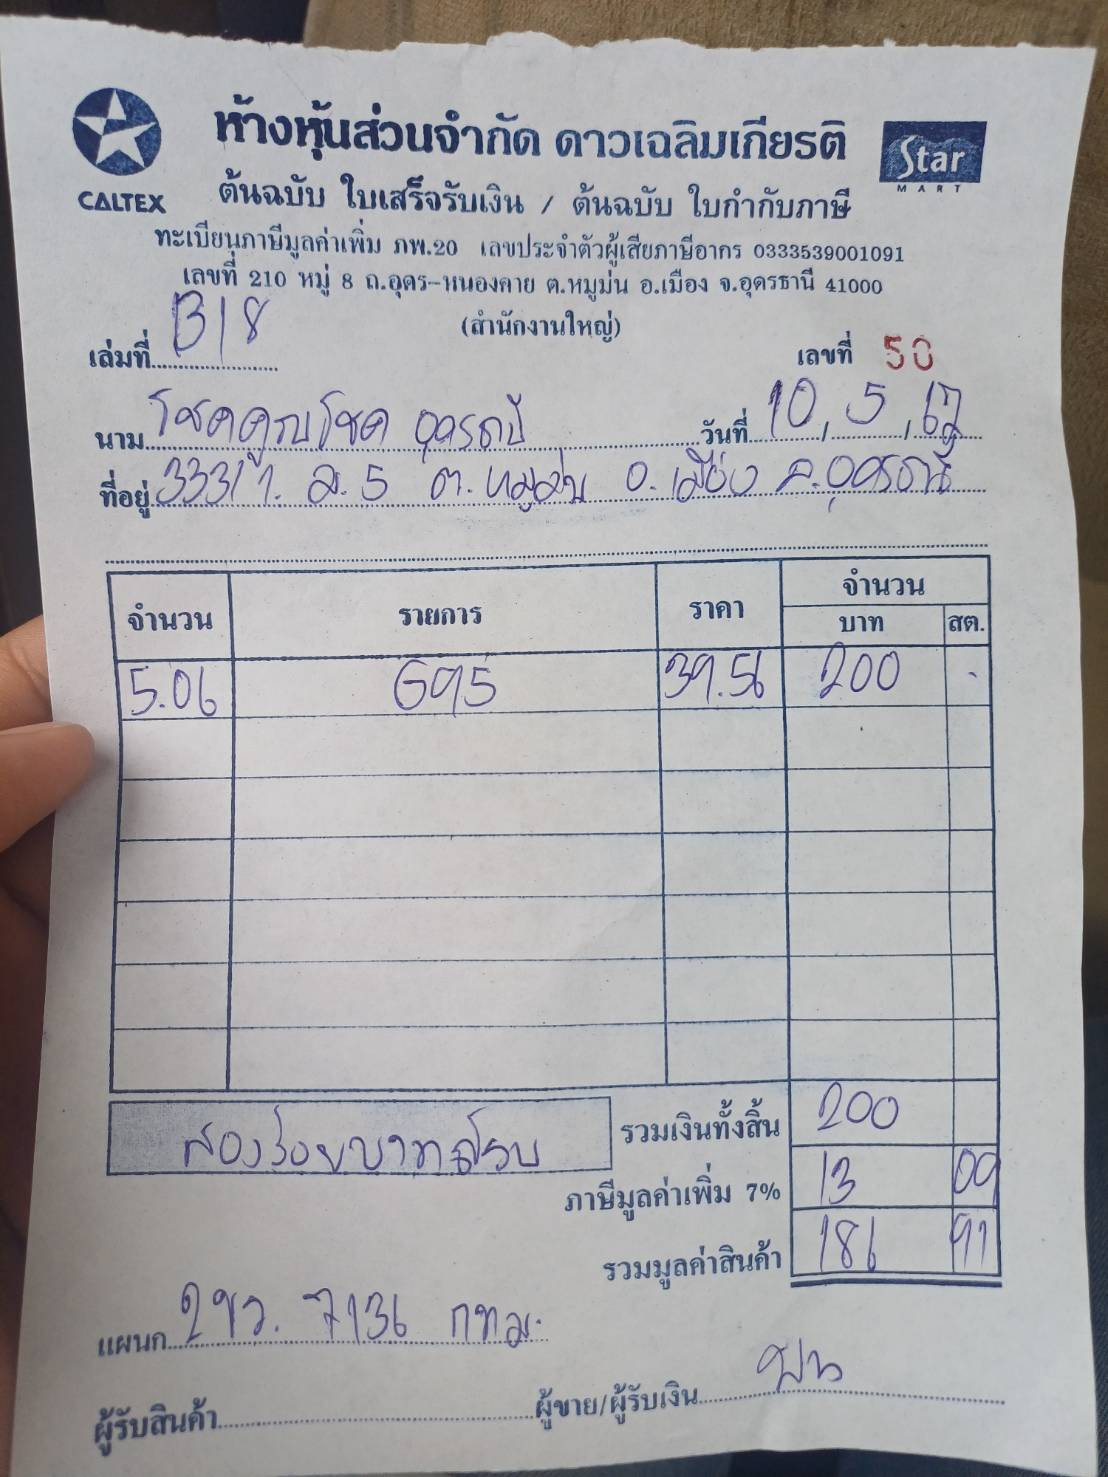 ห้างหุ้นส่วนจำกัด ดาวเฉลิมเกียรติ
CALTEX
Star
MART
ต้นฉบับ ใบเสร็จรับเงิน / ต้นฉบับ ใบกำกับภาษี
ทะเบียนภาษีมูลค่าเพิ่ม ภพ.20 เลขประจำตัวผู้เสียภาษีอากร 0333539001091
เลขที่ 210 หมู่ 8 ถ.อุดร-หนองคาย ต.หมูม่น อ.เมือง จ.อุดรธานี 41000
(สำนักงานใหญ่)
เล่มที่ 318 เลขที่ 50
นาม โชคคูณโชค อุดรธานี วันที่ 10, 5, 67
ที่อยู่ 333/1 ม.5 ต.หมูม่น อ.เมือง จ.อุดรธานี
จำนวน รายการ ราคา จำนวน
บาท สต.
5.06 G95 39.56 200 -
รวมเงินทั้งสิ้น 200
สองร้อยบาทถ้วน
ภาษีมูลค่าเพิ่ม 7% 13 09
รวมมูลค่าสินค้า 186 91
แผนก 2ขว. 7136 กทม.
ผู้รับสินค้า ผู้ขาย/ผู้รับเงิน